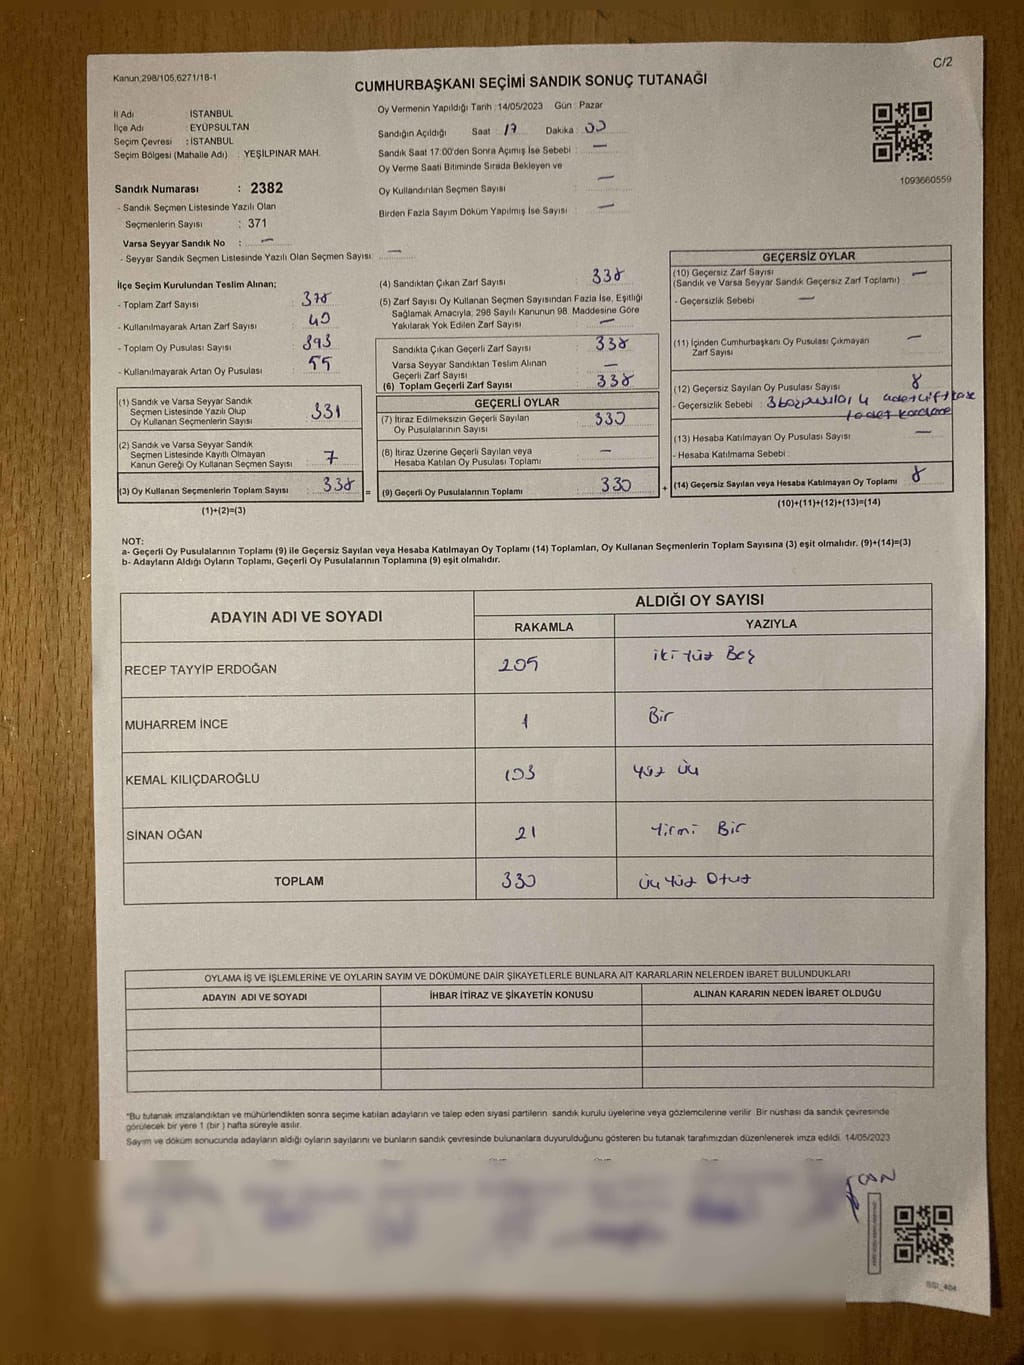 Kanun;298/105,6271/18-1
C/2
CUMHURBAŞKANI SEÇİMİ SANDIK SONUÇ TUTANAĞI
İl Adı : İSTANBUL
İlçe Adı : EYÜPSULTAN
Seçim Çevresi : İSTANBUL
Seçim Bölgesi (Mahalle Adı) : YEŞİLPINAR MAH.
Sandık Numarası : 2382
- Sandık Seçmen Listesinde Yazılı Olan
Seçmenlerin Sayısı : 371
Varsa Seyyar Sandık No : —
- Seyyar Sandık Seçmen Listesinde Yazılı Olan Seçmen Sayısı: —
Oy Vermenin Yapıldığı Tarih :14/05/2023 Gün : Pazar
Sandığın Açıldığı Saat 17 Dakika 00
Sandık Saat 17:00'den Sonra Açımış İse Sebebi : —
Oy Verme Saati Bitiminde Sırada Bekleyen ve
Oy Kullandırılan Seçmen Sayısı : —
Birden Fazla Sayım Döküm Yapılmış İse Sayısı : —
1093660559
İlçe Seçim Kurulundan Teslim Alınan;
- Toplam Zarf Sayısı : 378
- Kullanılmayarak Artan Zarf Sayısı : 40
- Toplam Oy Pusulası Sayısı : 393
- Kullanılmayarak Artan Oy Pusulası : 55
(1) Sandık ve Varsa Seyyar Sandık
Seçmen Listesinde Yazılı Olup
Oy Kullanan Seçmenlerin Sayısı : 331
(2) Sandık ve Varsa Seyyar Sandık
Seçmen Listesinde Kayıtlı Olmayan
Kanun Gereği Oy Kullanan Seçmen Sayısı : 7
(3) Oy Kullanan Seçmenlerin Toplam Sayısı : 338 =
(1)+(2)=(3)
(4) Sandıktan Çıkan Zarf Sayısı : 338
(5) Zarf Sayısı Oy Kullanan Seçmen Sayısından Fazla İse, Eşitliği
Sağlamak Amacıyla; 298 Sayılı Kanunun 98. Maddesine Göre
Yakılarak Yok Edilen Zarf Sayısı : —
Sandıkta Çıkan Geçerli Zarf Sayısı : 338
Varsa Seyyar Sandıktan Teslim Alınan
Geçerli Zarf Sayısı : —
(6) Toplam Geçerli Zarf Sayısı : 338
GEÇERLİ OYLAR
(7) İtiraz Edilmeksizin Geçerli Sayılan
Oy Pusulalarının Sayısı : 330
(8) İtiraz Üzerine Geçerli Sayılan veya
Hesaba Katılan Oy Pusulası Toplamı : —
(9) Geçerli Oy Pusulalarının Toplamı : 330 +
GEÇERSİZ OYLAR
(10) Geçersiz Zarf Sayısı : —
(Sandık ve Varsa Seyyar Sandık Geçersiz Zarf Toplamı)
- Geçersizlik Sebebi : —
(11) İçinden Cumhurbaşkanı Oy Pusulası Çıkmayan
Zarf Sayısı : —
(12) Geçersiz Sayılan Oy Pusulası Sayısı : 8
- Geçersizlik Sebebi : 4 adet çift
1 adet
(13) Hesaba Katılmayan Oy Pusulası Sayısı : —
- Hesaba Katılmama Sebebi :
(14) Geçersiz Sayılan veya Hesaba Katılmayan Oy Toplamı : 8
(10)+(11)+(12)+(13)=(14)
NOT:
a- Geçerli Oy Pusulalarının Toplamı (9) ile Geçersiz Sayılan veya Hesaba Katılmayan Oy Toplamı (14) Toplamları, Oy Kullanan Seçmenlerin Toplam Sayısına (3) eşit olmalıdır. (9)+(14)=(3)
b- Adayların Aldığı Oyların Toplamı, Geçerli Oy Pusulalarının Toplamına (9) eşit olmalıdır.
ADAYIN ADI VE SOYADI ALDIĞI OY SAYISI
RAKAMLA YAZIYLA
RECEP TAYYİP ERDOĞAN 205 iki Yüz Beş
MUHARREM İNCE 1 Bir
KEMAL KILIÇDAROĞLU 103 Yüz Üç
SİNAN OĞAN 21 Yirmi Bir
TOPLAM 330 Üç Yüz Otuz
OYLAMA İŞ VE İŞLEMLERİNE VE OYLARIN SAYIM VE DÖKÜMÜNE DAİR ŞİKAYETLERLE BUNLARA AİT KARARLARIN NELERDEN İBARET BULUNDUKLARI
ADAYIN ADI VE SOYADI İHBAR İTİRAZ VE ŞİKAYETİN KONUSU ALINAN KARARIN NEDEN İBARET OLDUĞU
*Bu tutanak imzalandıktan ve mühürlendikten sonra seçime katılan adayların ve talep eden siyasi partilerin sandık kurulu üyelerine veya gözlemcilerine verilir. Bir nüshası da sandık çevresinde
görülecek bir yere 1 (bir ) hafta süreyle asılır.
Sayım ve döküm sonucunda adayların aldığı oyların sayılarını ve bunların sandık çevresinde bulunanlara duyurulduğunu gösteren bu tutanak tarafımızdan düzenlenerek imza edildi. 14/05/2023